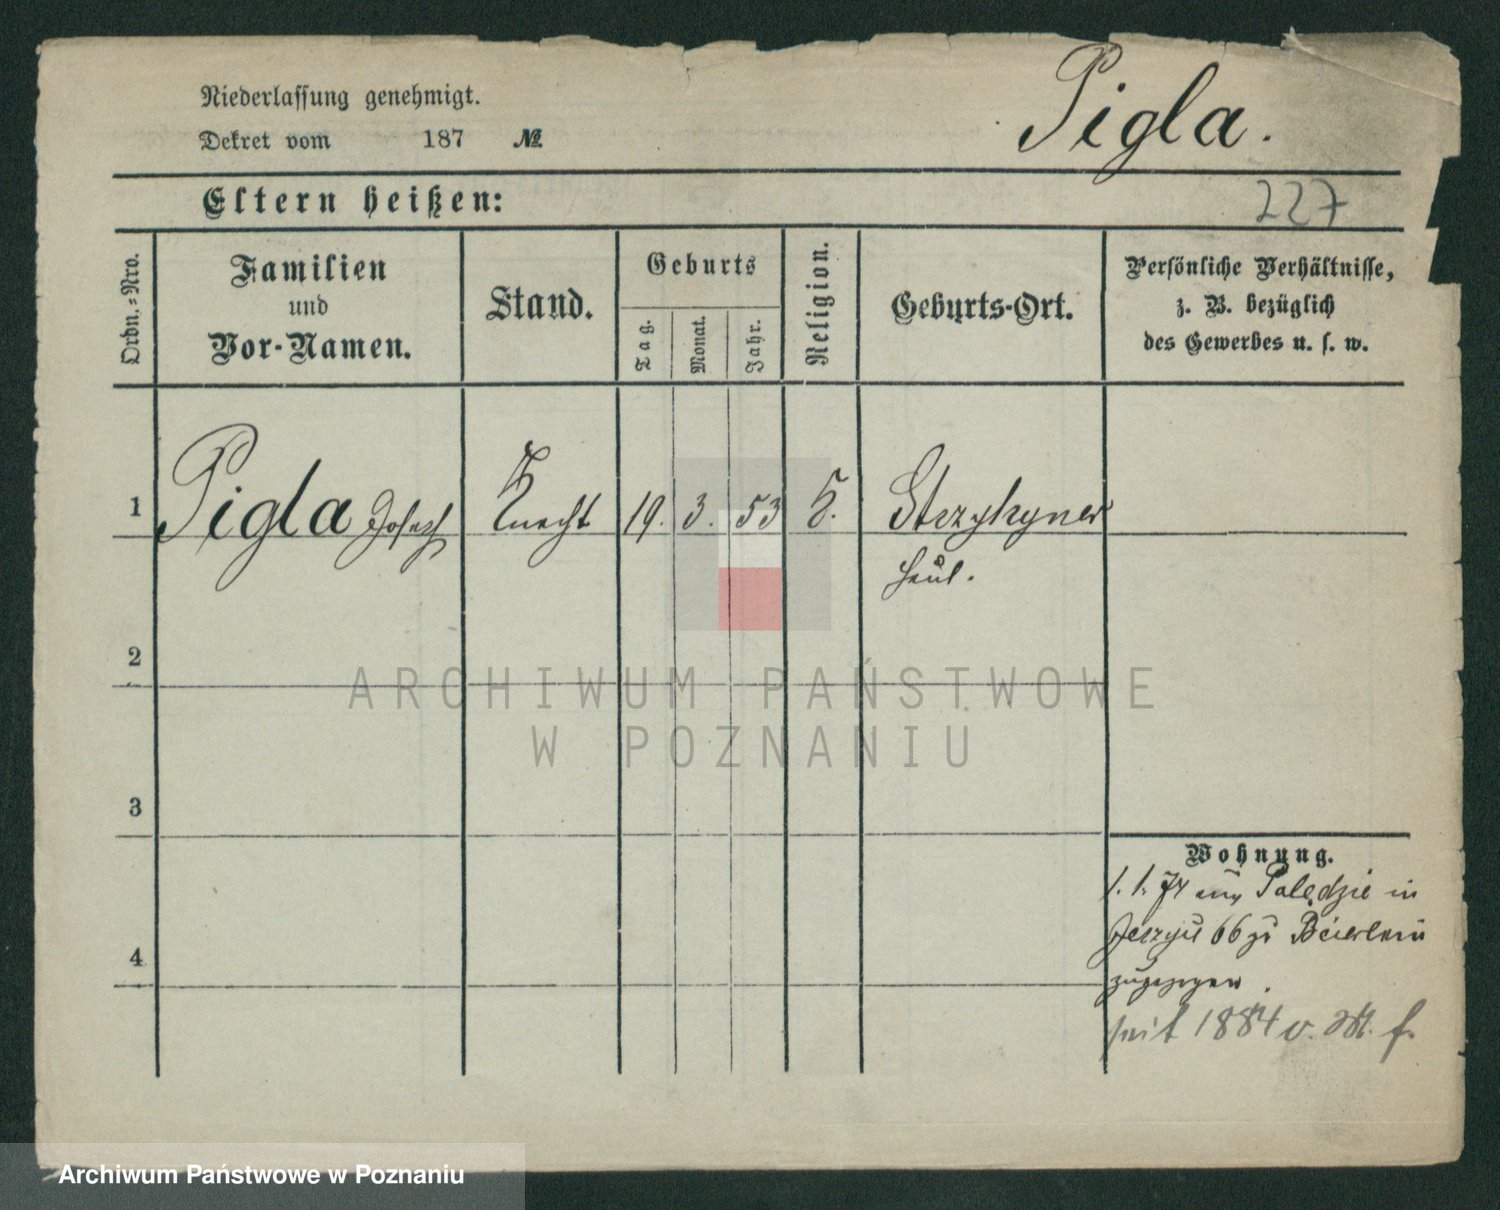 Niederlassung genehmigt.
Dekret vom 187 №
Pigla.
227
Eltern heißen:
Ordn.-Nro.
Familien
und
Vor-Namen.
Stand.
Geburts
Tag.
Monat.
Jahr.
Religion.
Geburts-Ort.
Persönliche Verhältnisse,
z. B. bezüglich
des Gewerbes u. s. w.
1 Pigla Joseph Knecht 19. 3. 53 K.
Haul.
2
3
4
Wohnung.
1. 1. 74 aus Palędzie in
66 zu
zugezogen.
seit 1884 v. M. f.
ARCHIWUM PAŃSTWOWE
W POZNANIU
Archiwum Państwowe w Poznaniu